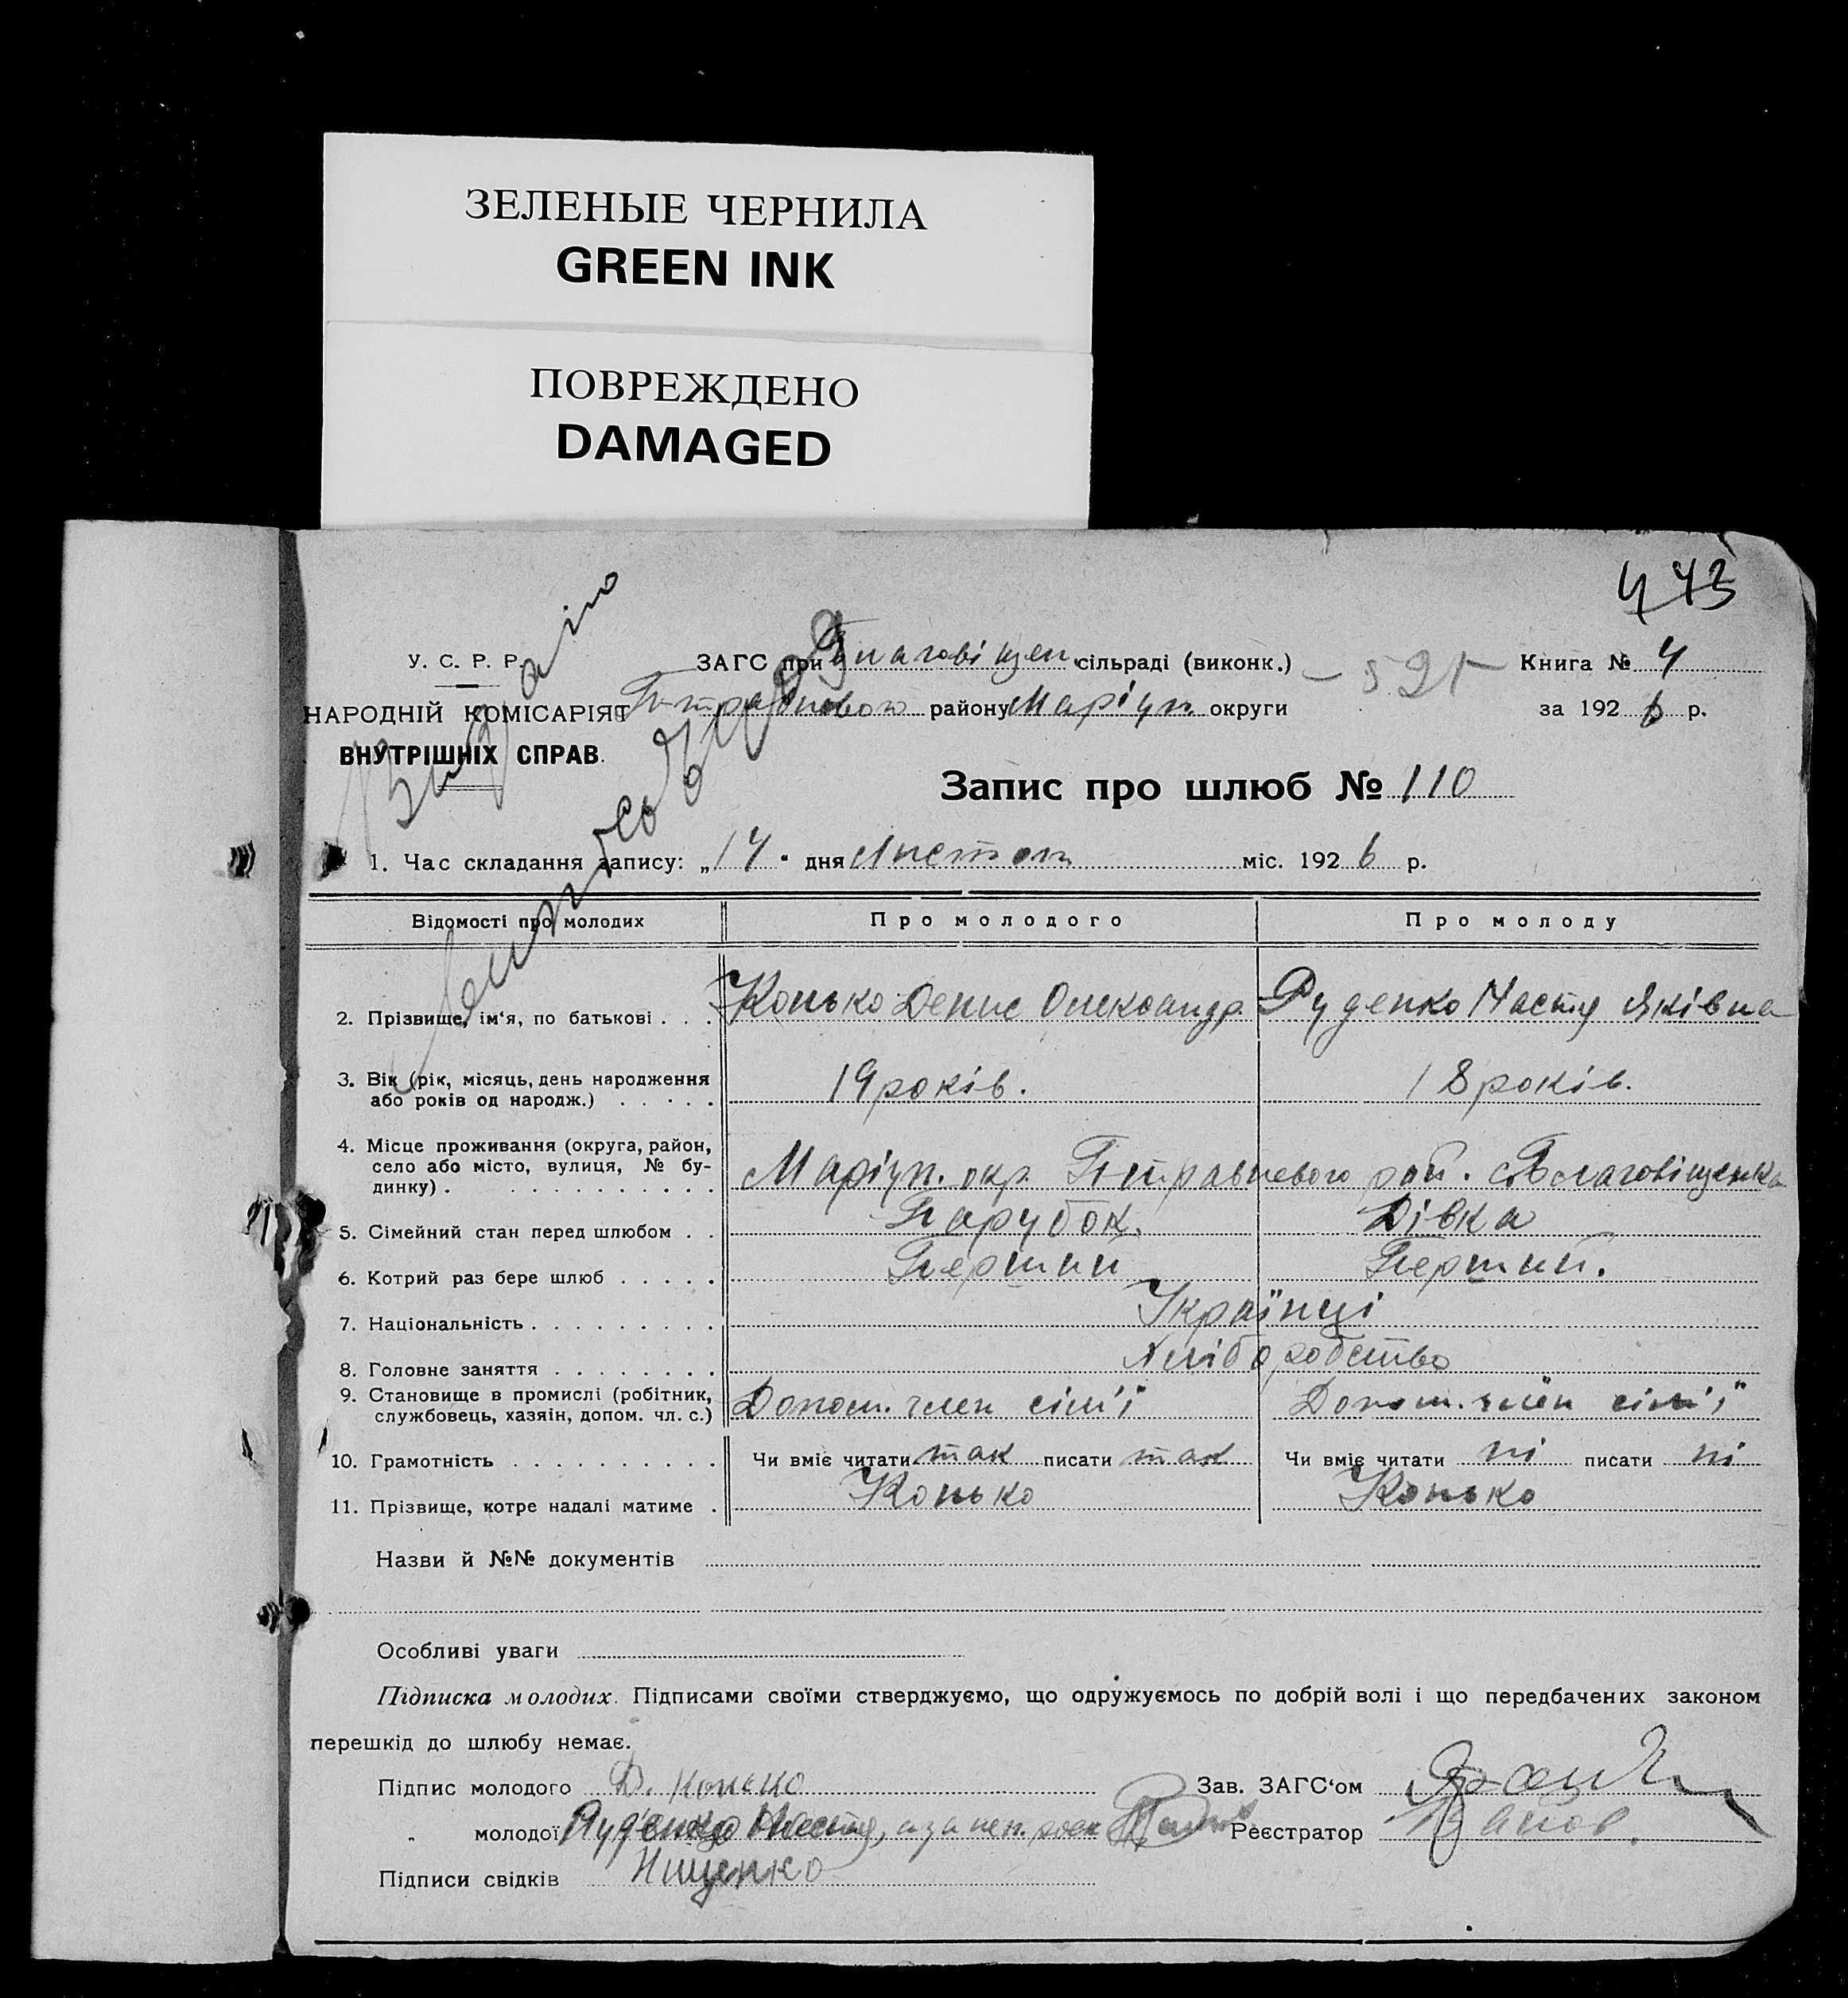 ЗЕЛЕНЫЕ ЧЕРНИЛА
GREEN INK
ПОВРЕЖДЕНО
DAMAGED
443
У. С. Р. Р.
НАРОДНІЙ КОМІСАРІЯТ
ВНУТРІШНІХ СПРАВ.
ЗАГС при Благовіщен. сільраді (виконк.)
району Маріуп округи
Книга № 4
за 1926 р.
Запис про шлюб № 110
1. Час складання запису: „14" дня Листоп міс. 1926 р.
Відомості про молодих Про молодого Про молоду
2. Прізвище, ім'я, по батькові . . . Конько Денис Олександр. Руденко Настя Яківна
3. Вік (рік, місяць, день народження
або років од народж.) . . . . . 19 років. 18 років.
4. Місце проживання (округа, район,
село або місто, вулиця, № бу-
динку) . . . . . . . . . . . Маріуп. окр. рай. с. Благовіщенка
5. Сімейний стан перед шлюбом . . Парубок. Дівка
6. Котрий раз бере шлюб . . . . . Перший Перший.
7. Національність . . . . . . . . . Українці
8. Головне заняття . . . . . . . . Хліборобство
9. Становище в промислі (робітник,
службовець, хазяін, допом. чл. с.) Допом. член сім'ї Допом. член сім'ї
10. Грамотність . . . . . . . . . . Чи вміє читати так писати так Чи вміє читати ні писати ні
11. Прізвище, котре надалі матиме . Конько Конько
Назви й №№ документів
Особливі уваги
Підписка молодих. Підписами своїми стверджуємо, що одружуємось по добрій волі і що передбачених законом
перешкід до шлюбу немає.
Підпис молодого Д. Конько Зав. ЗАГС'ом
" молодої Руденко Настя, а за неп. Реєстратор
Підписи свідків Нищенко